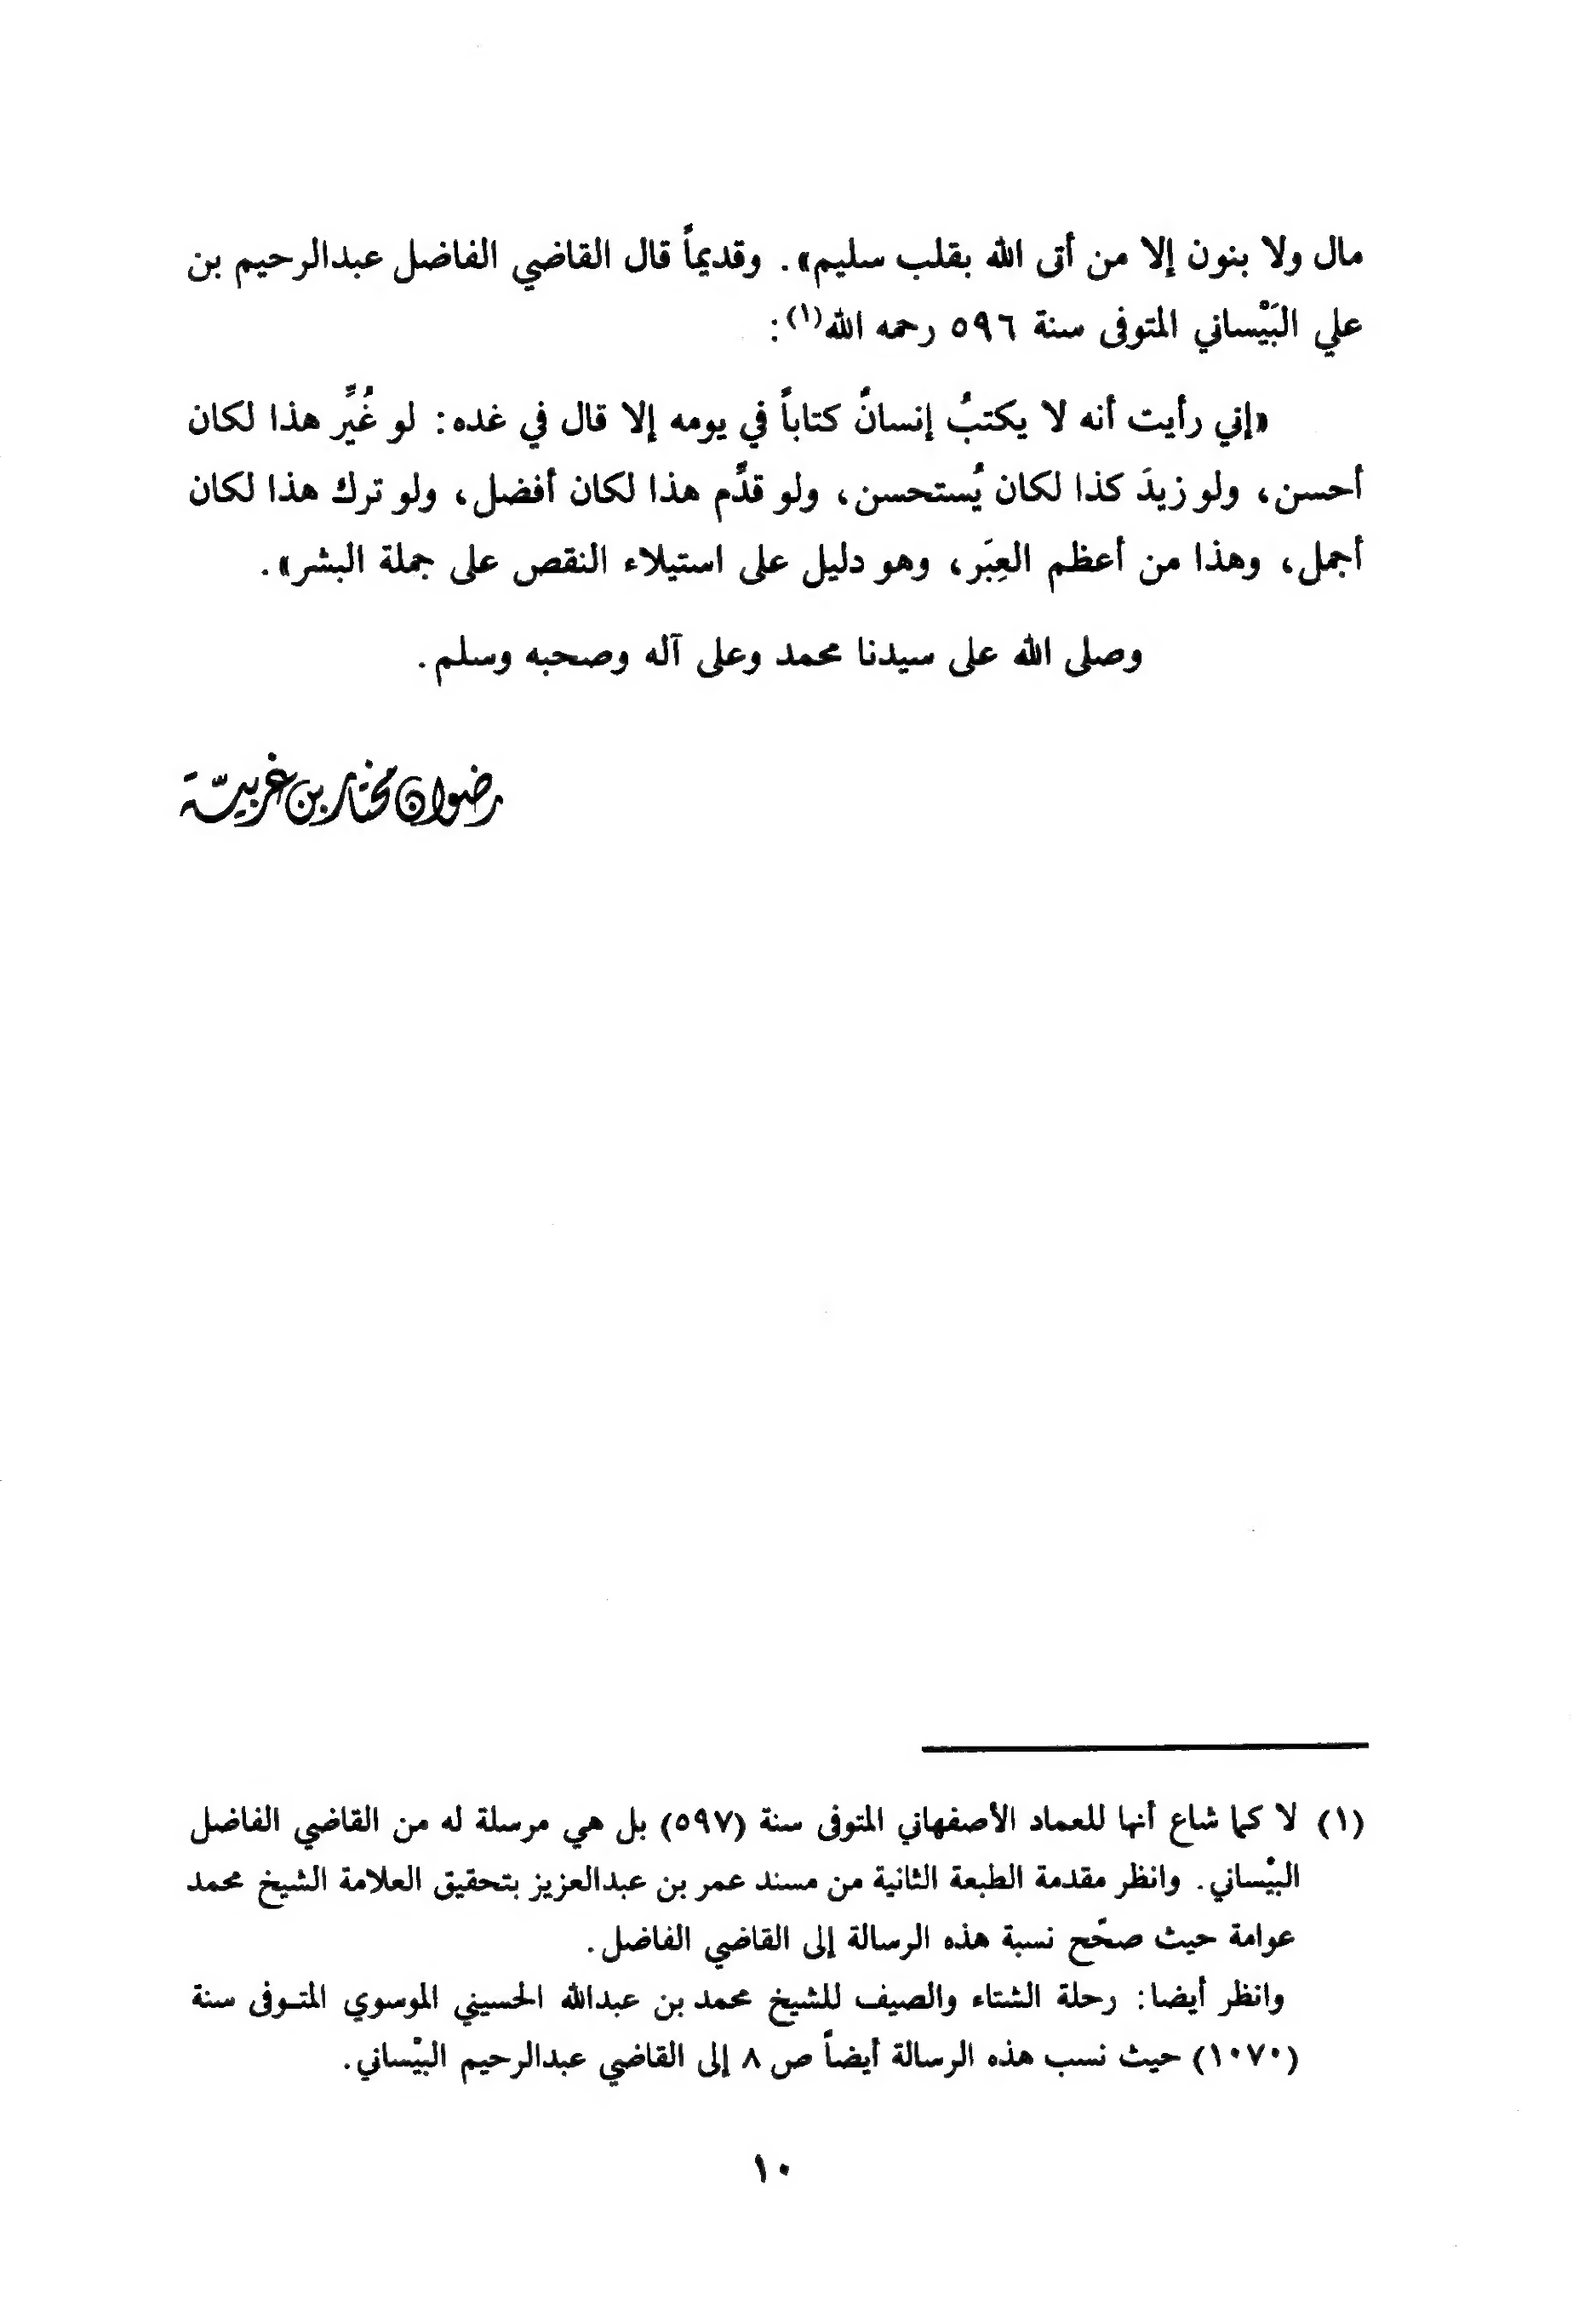 مال ولا بنون إلا من أتى الله بقلب سليم». وقديماً قال القاضي الفاضل عبدالرحيم بن
علي البَيْساني المتوفى سنة ٥٩٦ رحمه الله(١):
«إني رأيت أنه لا يكتبُ إنسانٌ كتاباً في يومه إلا قال في غده: لو غُيِّر هذا لكان
أحسن، ولو زيدَ كذا لكان يُستحسن، ولو قدِّم هذا لكان أفضل، ولو ترك هذا لكان
أجمل، وهذا من أعظم العِبَر، وهو دليل على استيلاء النقص على جملة البشر».
وصلى الله على سيدنا محمد وعلى آله وصحبه وسلم.
رضوان مختار بن غربيّة
(١) لا كما شاع أنها للعماد الأصفهاني المتوفى سنة (٥٩٧) بل هي مرسلة له من القاضي الفاضل
البيْساني. وانظر مقدمة الطبعة الثانية من مسند عمر بن عبدالعزيز بتحقيق العلامة الشيخ محمد
عوامة حيث صحّح نسبة هذه الرسالة إلى القاضي الفاضل.
وانظر أيضا: رحلة الشتاء والصيف للشيخ محمد بن عبدالله الحسيني الموسوي المتـوفى سنة
(١٠٧٠) حيث نسب هذه الرسالة أيضاً ص ٨ إلى القاضي عبدالرحيم البيْساني.
١٠